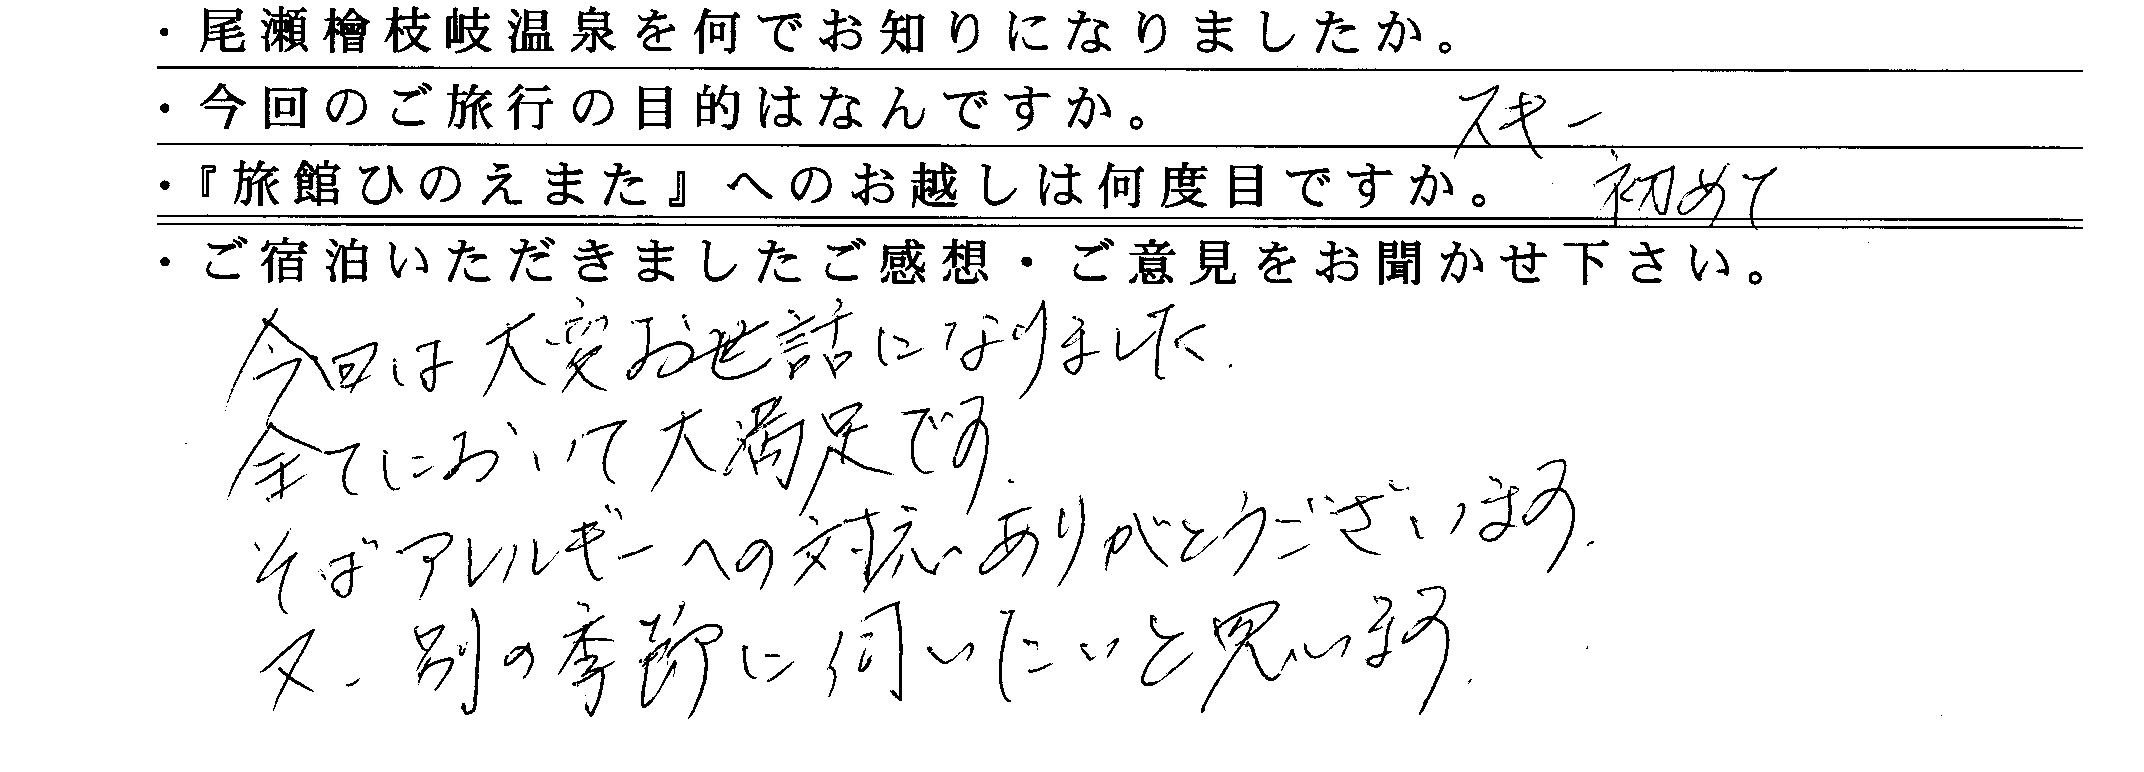 ・尾瀬檜枝岐温泉を何でお知りになりましたか。
・今回のご旅行の目的はなんですか。 スキー
・『旅館ひのえまた』へのお越しは何度目ですか。 初めて
・ご宿泊いただきましたご感想・ご意見をお聞かせ下さい。
今回は大変お世話になりました.
全てにおいて大満足です.
そばアレルギーへの対応ありがとうございます.
又、別の季節に伺いたいと思います.